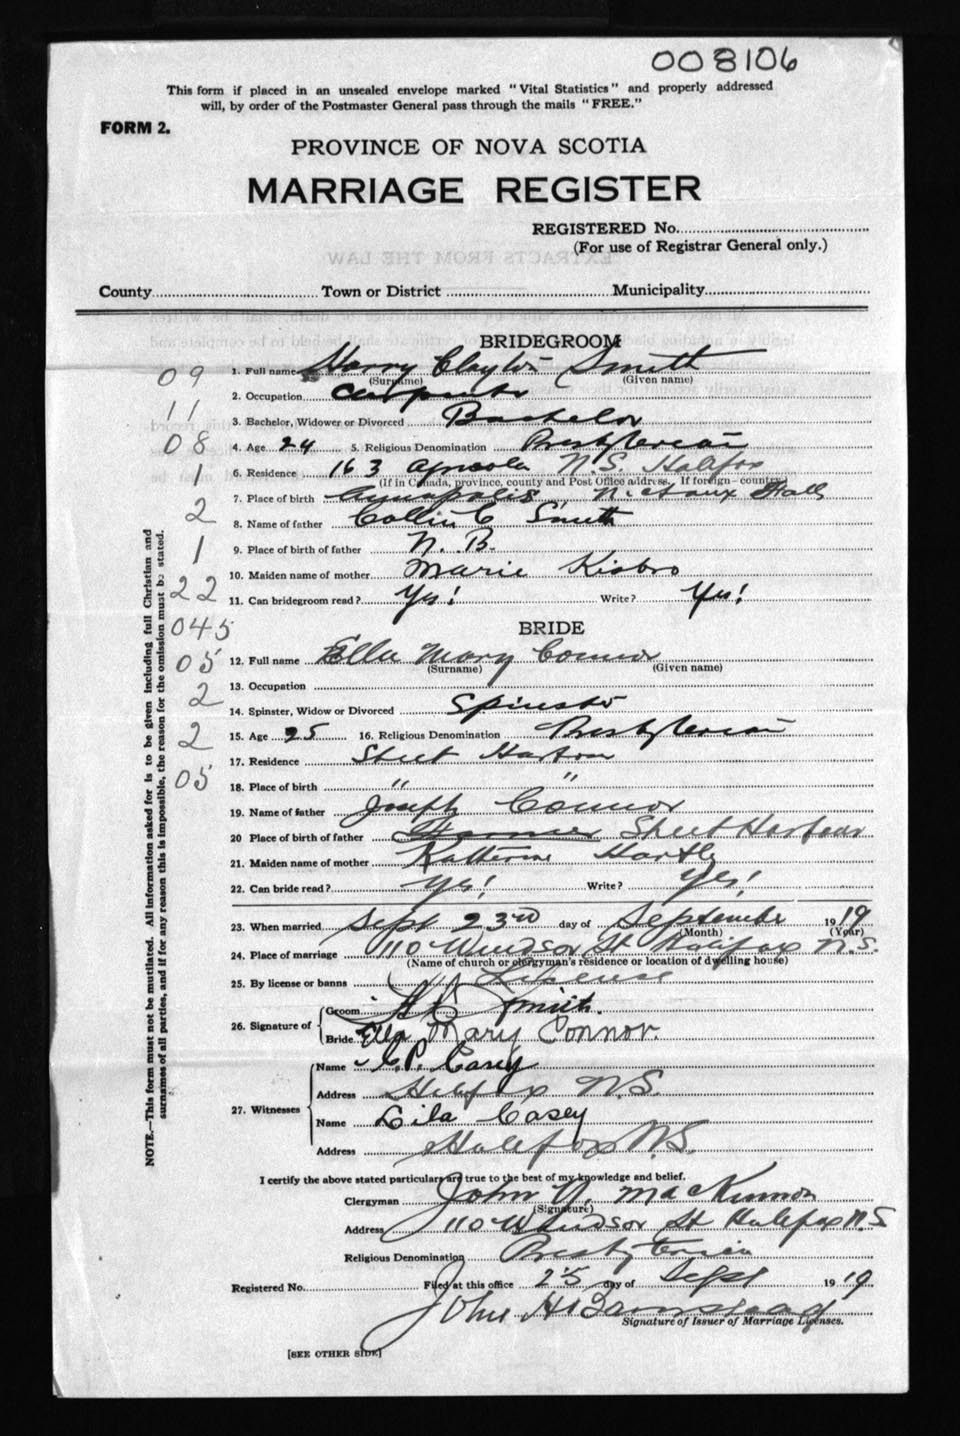 008106
This form if placed in an unsealed envelope marked "Vital Statistics" and properly addressed
will, by order of the Postmaster General pass through the mails "FREE."
FORM 2.
PROVINCE OF NOVA SCOTIA
MARRIAGE REGISTER
REGISTERED No.
(For use of Registrar General only.)
EXTRACTS FROM THE LAW
County Town or District Municipality
BRIDEGROOM
09 1. Full name Harry Clayton Smith
(Surname) (Given name)
2. Occupation Carpenter
11 3. Bachelor, Widower or Divorced Bachelor
08 4. Age 24 5. Religious Denomination Presbyterian
1 6. Residence 163 Agricola N.S. Halifax
(If in Canada, province, county and Post Office address. If foreign—country)
7. Place of birth Annapolis, Nictaux Falls
2 8. Name of father Collin C Smith
1 9. Place of birth of father N.B.
10. Maiden name of mother Marie
22 11. Can bridegroom read? Yes! Write? Yes!
045 BRIDE
05 12. Full name Ella Mary Connor
(Surname) (Given name)
13. Occupation
2 14. Spinster, Widow or Divorced Spinster
2 15. Age 25 16. Religious Denomination Presbyterian
17. Residence Sheet Harbour
05 18. Place of birth " "
19. Name of father Joseph Connor
20 Place of birth of father Sheet Harbour
21. Maiden name of mother Katherine Hartly
22. Can bride read? Yes! Write? Yes!
23. When married Sept 23rd day of September 1919
(Month) (Year)
24. Place of marriage 110 Windsor St Halifax N.S.
(Name of church or clergyman's residence or location of dwelling house)
25. By license or banns License
26. Signature of Groom H C Smith.
Bride Ella Mary Connor.
27. Witnesses Name C.P. Casey
Address Halifax N.S.
Name Lila Casey
Address Halifax N.S.
I certify the above stated particulars are true to the best of my knowledge and belief.
Clergyman John A. MacKinnon
(Signature)
Address 110 Windsor St Halifax N.S
Religious Denomination Presbyterian
Registered No. Filed at this office 25 day of Sept 1919
John H Barnstead
Signature of Issuer of Marriage Licenses.
[SEE OTHER SIDE]
NOTE.—This form must not be mutilated. All information asked for is to be given including full Christian and
surnames of all parties, and if for any reason this is impossible, the reason for the omission must be stated.